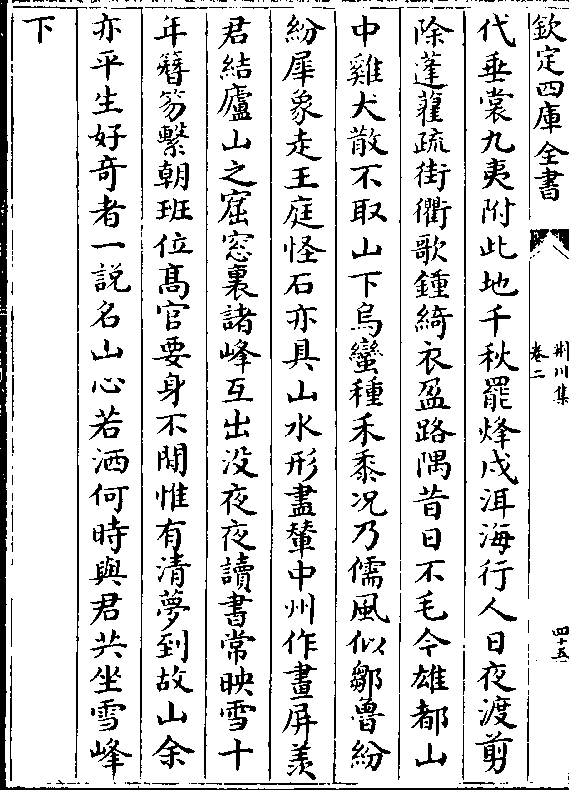 欽定四庫全書
荆川集
卷二
四十五
代垂裳九夷附此地千秋罷烽戍洱海行人日夜渡剪
除蓬藋疏街衢歌鍾綺衣盈路隅昔日不毛今雄都山
中雞犬散不取山下烏蠻種禾黍况乃儒風似鄒魯紛
紛犀象走王庭怪石亦具山水形盡輦中州作畫屏羨
君結廬山之窟窓裏諸峰互出没夜夜讀書常映雪十
年簪笏繫朝班位髙官要身不閒惟有清夢到故山余
亦平生好奇者一説名山心若洒何時與君共坐雪峰
下